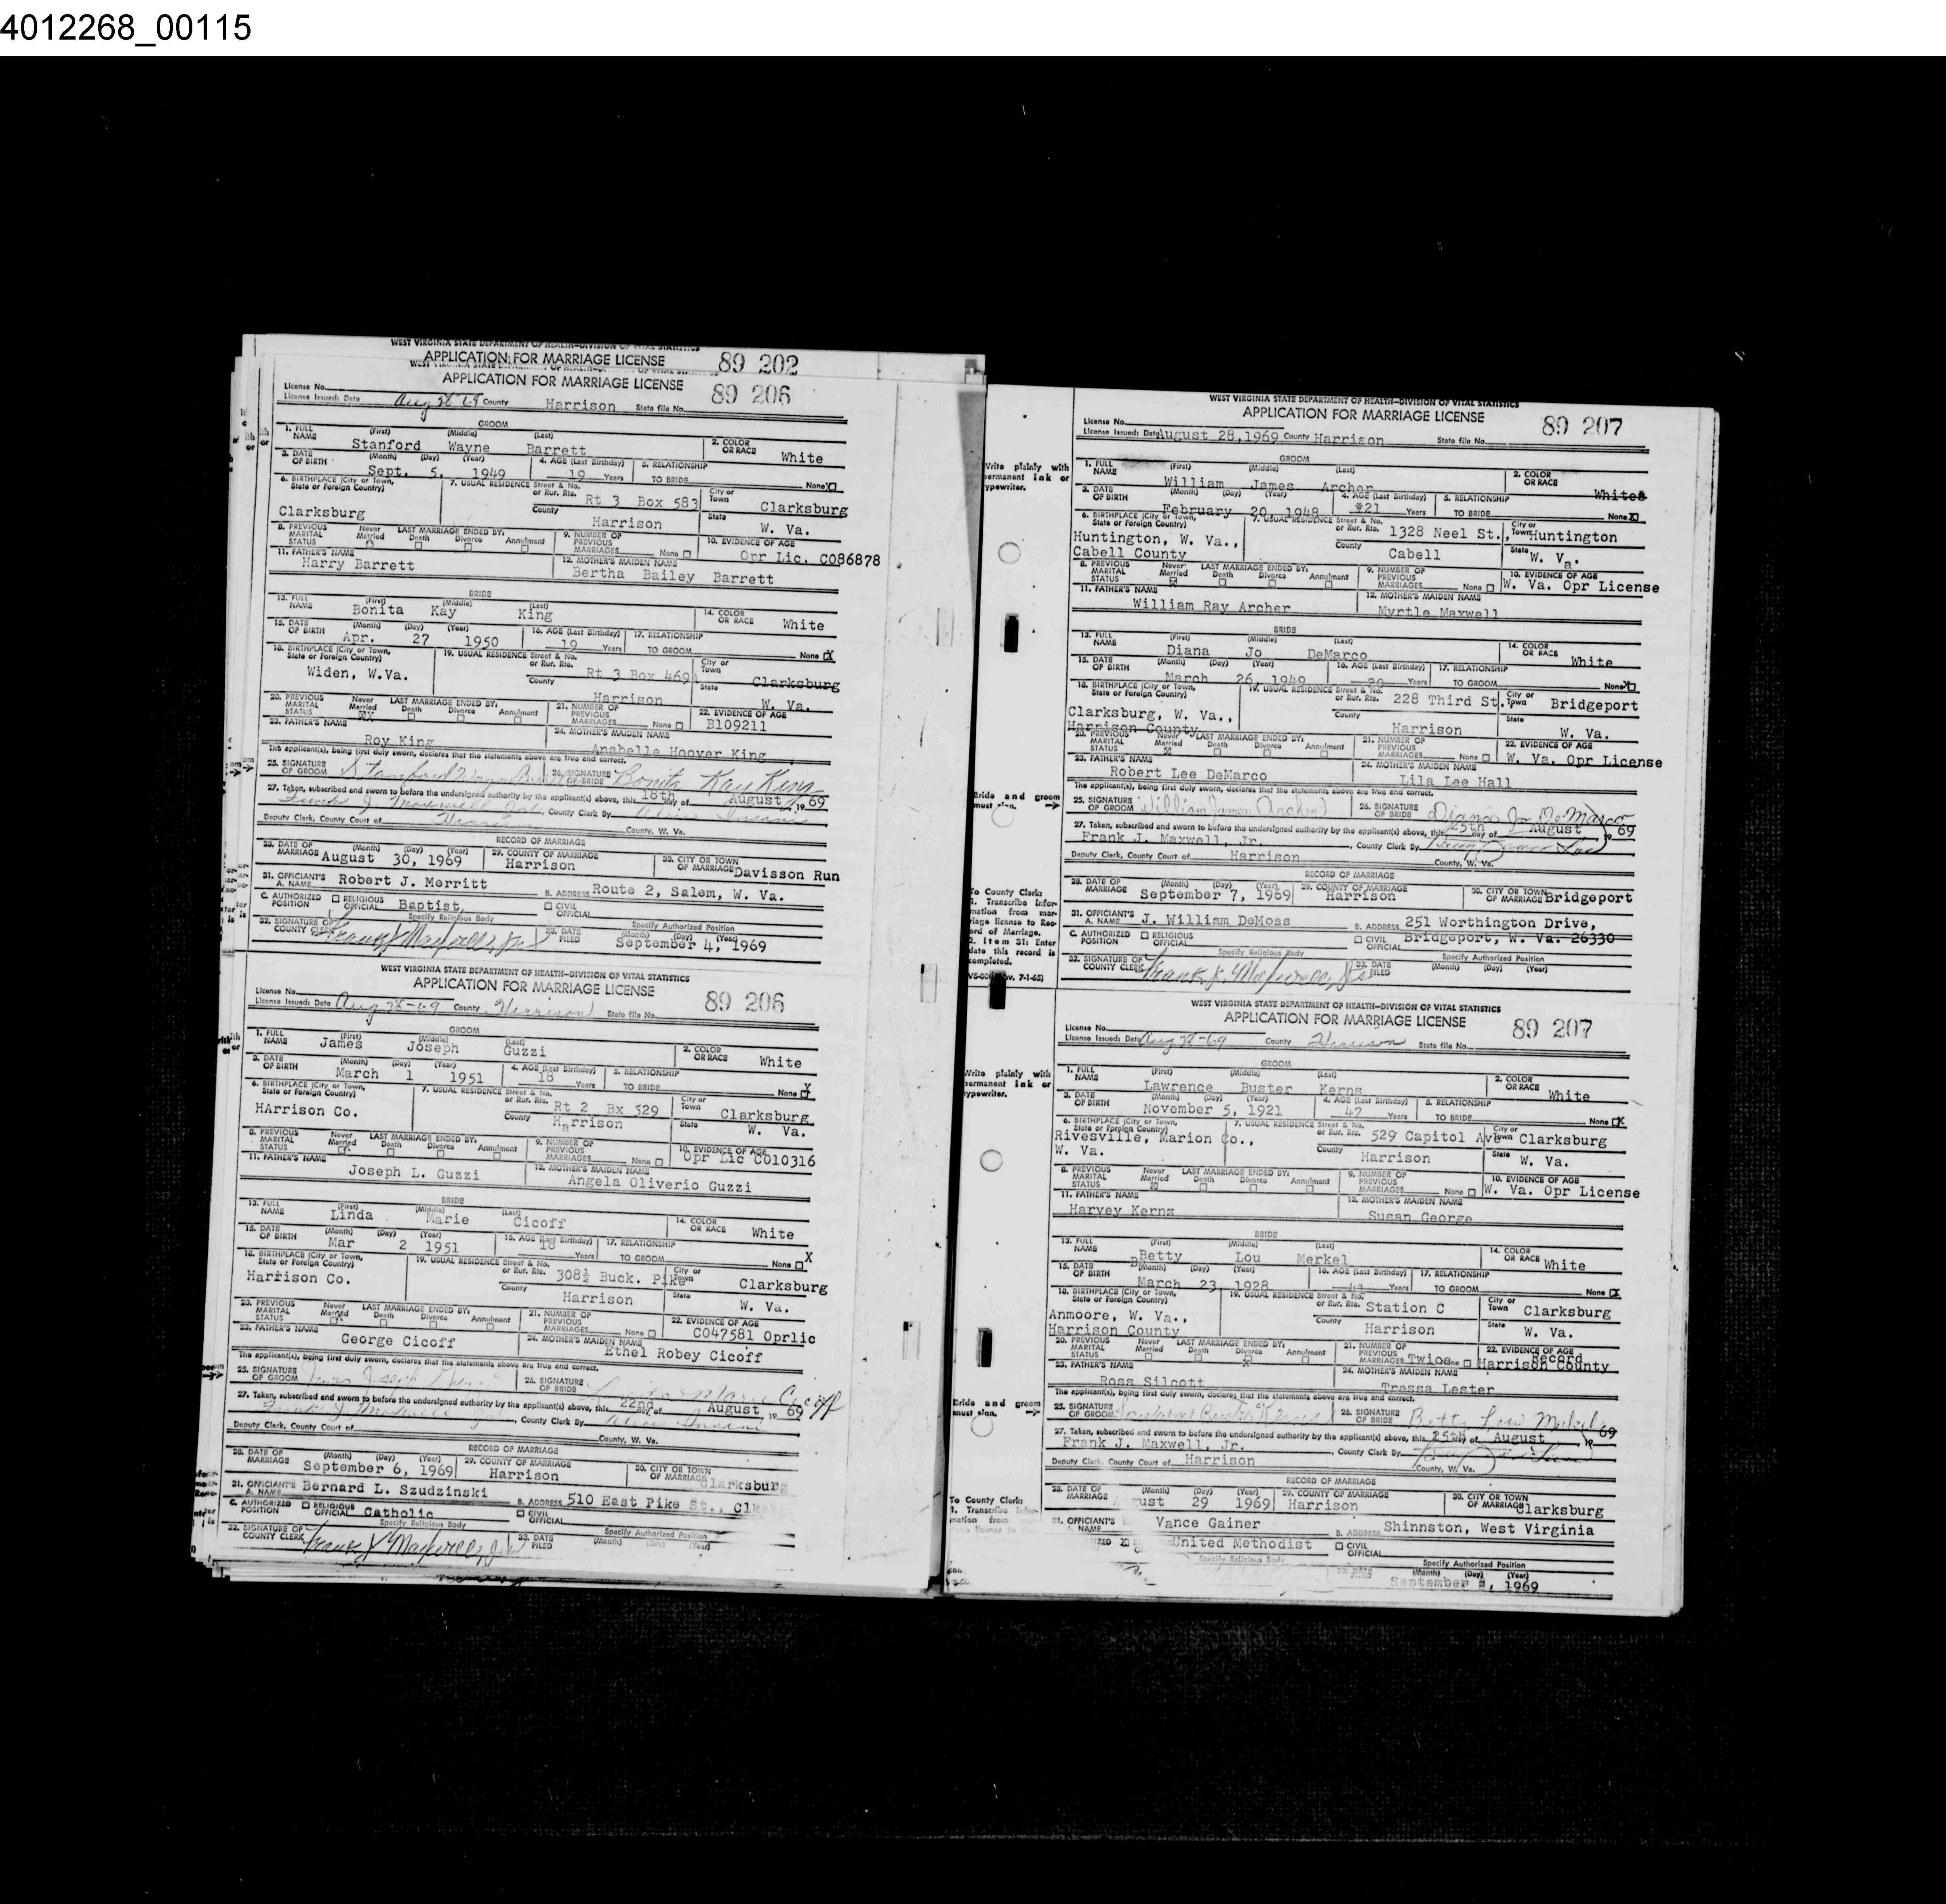 4012268_00115
WEST VIRGINIA STATE DEPARTMENT OF HEALTH—DIVISION OF VITAL STATISTICS
APPLICATION FOR MARRIAGE LICENSE 89 202
APPLICATION FOR MARRIAGE LICENSE 89 206
License No.
License Issued: Date Aug 28 69 County Harrison State file No.
GROOM
1. FULL NAME (First) (Middle) (Last) Stanford Wayne Barrett 2. COLOR OR RACE White
3. DATE OF BIRTH (Month) (Day) (Year) Sept. 5, 1949 4. AGE (Last Birthday) 19 Years 5. RELATIONSHIP TO BRIDE None X
6. BIRTHPLACE (City or Town, State or Foreign Country) Clarksburg 7. USUAL RESIDENCE Street & No. or Rur. Rte. Rt 3 Box 583 City or Town Clarksburg
County Harrison State W. Va.
8. PREVIOUS MARITAL STATUS Never Married LAST MARRIAGE ENDED BY: Death Divorce Annulment 9. NUMBER OF PREVIOUS MARRIAGES None 10. EVIDENCE OF AGE Opr Lic. C086878
11. FATHER'S NAME Harry Barrett 12. MOTHER'S MAIDEN NAME Bertha Bailey Barrett
BRIDE
13. FULL NAME (First) (Middle) (Last) Bonita Kay King 14. COLOR OR RACE White
15. DATE OF BIRTH (Month) (Day) (Year) Apr. 27 1950 16. AGE (Last Birthday) 19 Years 17. RELATIONSHIP TO GROOM None X
18. BIRTHPLACE (City or Town, State or Foreign Country) Widen, W.Va. 19. USUAL RESIDENCE Street & No. or Rur. Rte. Rt 3 Box 469 City or Town Clarksburg
County Harrison State W. Va.
20. PREVIOUS MARITAL STATUS Never Married X LAST MARRIAGE ENDED BY: Death Divorce Annulment 21. NUMBER OF PREVIOUS MARRIAGES None 22. EVIDENCE OF AGE B109211
23. FATHER'S NAME Roy King 24. MOTHER'S MAIDEN NAME Anabelle Hoover King
The applicant(s), being first duly sworn, declares that the statements above are true and correct.
25. SIGNATURE OF GROOM Stanford Wayne Barrett 26. SIGNATURE OF BRIDE Bonita Kay King
27. Taken, subscribed and sworn to before the undersigned authority by the applicant(s) above, this 18th day of August, 19 69
Frank J. Maxwell, Jr., County Clerk By
Deputy Clerk, County Court of Harrison County, W. Va.
RECORD OF MARRIAGE
28. DATE OF MARRIAGE (Month) (Day) (Year) August 30, 1969 29. COUNTY OF MARRIAGE Harrison 30. CITY OR TOWN OF MARRIAGE Davisson Run
31. OFFICIANT'S A. NAME Robert J. Merritt B. ADDRESS Route 2, Salem, W. Va.
C. AUTHORIZED POSITION RELIGIOUS OFFICIAL Baptist Specify Religious Body CIVIL OFFICIAL Specify Authorized Position
32. SIGNATURE OF COUNTY CLERK Frank J. Maxwell, Jr. 33. DATE FILED (Month) (Day) (Year) September 4, 1969
WEST VIRGINIA STATE DEPARTMENT OF HEALTH—DIVISION OF VITAL STATISTICS
APPLICATION FOR MARRIAGE LICENSE 89 206
License No.
License Issued: Date Aug 28-69 County Harrison State file No.
GROOM
1. FULL NAME (First) (Middle) (Last) James Joseph Guzzi 2. COLOR OR RACE White
3. DATE OF BIRTH (Month) (Day) (Year) March 1 1951 4. AGE (Last Birthday) 18 Years 5. RELATIONSHIP TO BRIDE None X
6. BIRTHPLACE (City or Town, State or Foreign Country) HArrison Co. 7. USUAL RESIDENCE Street & No. or Rur. Rte. Rt 2 Bx 529 City or Town Clarksburg
County Harrison State W. Va.
8. PREVIOUS MARITAL STATUS Never Married X LAST MARRIAGE ENDED BY: Death Divorce Annulment 9. NUMBER OF PREVIOUS MARRIAGES None 10. EVIDENCE OF AGE Opr Lic C010316
11. FATHER'S NAME Joseph L. Guzzi 12. MOTHER'S MAIDEN NAME Angela Oliverio Guzzi
BRIDE
13. FULL NAME (First) (Middle) (Last) Linda Marie Cicoff 14. COLOR OR RACE White
15. DATE OF BIRTH (Month) (Day) (Year) Mar 2 1951 16. AGE (Last Birthday) 18 Years 17. RELATIONSHIP TO GROOM None X
18. BIRTHPLACE (City or Town, State or Foreign Country) Harrison Co. 19. USUAL RESIDENCE Street & No. or Rur. Rte. 308½ Buck. Pike City or Town Clarksburg
County Harrison State W. Va.
20. PREVIOUS MARITAL STATUS Never Married X LAST MARRIAGE ENDED BY: Death Divorce Annulment 21. NUMBER OF PREVIOUS MARRIAGES None 22. EVIDENCE OF AGE C047581 Oprlic
23. FATHER'S NAME George Cicoff 24. MOTHER'S MAIDEN NAME Ethel Robey Cicoff
The applicant(s), being first duly sworn, declares that the statements above are true and correct.
25. SIGNATURE OF GROOM James Joseph Guzzi 26. SIGNATURE OF BRIDE Linda Marie Cicoff
27. Taken, subscribed and sworn to before the undersigned authority by the applicant(s) above, this 22nd day of August, 19 69
Frank J. Maxwell, Jr., County Clerk By
Deputy Clerk, County Court of County, W. Va.
RECORD OF MARRIAGE
28. DATE OF MARRIAGE (Month) (Day) (Year) September 6, 1969 29. COUNTY OF MARRIAGE Harrison 30. CITY OR TOWN OF MARRIAGE Clarksburg
31. OFFICIANT'S A. NAME Bernard L. Szudzinski B. ADDRESS 510 East Pike St.,
C. AUTHORIZED POSITION RELIGIOUS OFFICIAL Catholic Specify Religious Body CIVIL OFFICIAL Specify Authorized Position
32. SIGNATURE OF COUNTY CLERK Frank J. Maxwell, Jr. 33. DATE FILED (Month) (Day) (Year)
WEST VIRGINIA STATE DEPARTMENT OF HEALTH—DIVISION OF VITAL STATISTICS
APPLICATION FOR MARRIAGE LICENSE 89 207
License No.
License Issued: Date August 28,1969 County Harrison State file No.
Write plainly with permanent ink or typewriter.
GROOM
1. FULL NAME (First) (Middle) (Last) William James Archer 2. COLOR OR RACE White
3. DATE OF BIRTH (Month) (Day) (Year) February 20, 1948 4. AGE (Last Birthday) 21 Years 5. RELATIONSHIP TO BRIDE None X
6. BIRTHPLACE (City or Town, State or Foreign Country) Huntington, W. Va., Cabell County 7. USUAL RESIDENCE Street & No. or Rur. Rte. 1328 Neel St., City or Town Huntington
County Cabell State W. Va.
8. PREVIOUS MARITAL STATUS Never Married X LAST MARRIAGE ENDED BY: Death Divorce Annulment 9. NUMBER OF PREVIOUS MARRIAGES None 10. EVIDENCE OF AGE W. Va. Opr License
11. FATHER'S NAME William Ray Archer 12. MOTHER'S MAIDEN NAME Myrtle Maxwell
BRIDE
13. FULL NAME (First) (Middle) (Last) Diana Jo DeMarco 14. COLOR OR RACE White
15. DATE OF BIRTH (Month) (Day) (Year) March 26, 1949 16. AGE (Last Birthday) 20 Years 17. RELATIONSHIP TO GROOM None X
18. BIRTHPLACE (City or Town, State or Foreign Country) Clarksburg, W. Va., Harrison County 19. USUAL RESIDENCE Street & No. or Rur. Rte. 228 Third St. City or Town Bridgeport
County Harrison State W. Va.
20. PREVIOUS MARITAL STATUS Never Married X LAST MARRIAGE ENDED BY: Death Divorce Annulment 21. NUMBER OF PREVIOUS MARRIAGES None 22. EVIDENCE OF AGE W. Va. Opr License
23. FATHER'S NAME Robert Lee DeMarco 24. MOTHER'S MAIDEN NAME Lila Lee Hall
The applicant(s), being first duly sworn, declares that the statements above are true and correct.
Bride and groom must sign.
25. SIGNATURE OF GROOM William James Archer 26. SIGNATURE OF BRIDE Diana Jo DeMarco
27. Taken, subscribed and sworn to before the undersigned authority by the applicant(s) above, this 25th day of August 19 69
Frank J. Maxwell, Jr., County Clerk By
Deputy Clerk, County Court of Harrison County, W. Va.
RECORD OF MARRIAGE
28. DATE OF MARRIAGE (Month) (Day) (Year) September 7, 1969 29. COUNTY OF MARRIAGE Harrison 30. CITY OR TOWN OF MARRIAGE Bridgeport
To County Clerk: 1. Transcribe information from marriage license to Record of Marriage. 2. Item 31: Enter date this record is completed.
31. OFFICIANT'S A. NAME J. William DeMoss B. ADDRESS 251 Worthington Drive, Bridgeport, W. Va. 26330
C. AUTHORIZED POSITION RELIGIOUS OFFICIAL Specify Religious Body CIVIL OFFICIAL Specify Authorized Position
32. SIGNATURE OF COUNTY CLERK Frank J. Maxwell, Jr. 33. DATE FILED (Month) (Day) (Year)
WEST VIRGINIA STATE DEPARTMENT OF HEALTH—DIVISION OF VITAL STATISTICS
APPLICATION FOR MARRIAGE LICENSE 89 207
License No.
License Issued: Date Aug 28-69 County Harrison State file No.
Write plainly with permanent ink or typewriter.
GROOM
1. FULL NAME (First) (Middle) (Last) Lawrence Buster Kerns 2. COLOR OR RACE White
3. DATE OF BIRTH (Month) (Day) (Year) November 5, 1921 4. AGE (Last Birthday) 47 Years 5. RELATIONSHIP TO BRIDE None X
6. BIRTHPLACE (City or Town, State or Foreign Country) Rivesville, Marion Co., W. Va. 7. USUAL RESIDENCE Street & No. or Rur. Rte. 529 Capitol Av City or Town Clarksburg
County Harrison State W. Va.
8. PREVIOUS MARITAL STATUS Never Married X LAST MARRIAGE ENDED BY: Death Divorce Annulment 9. NUMBER OF PREVIOUS MARRIAGES None 10. EVIDENCE OF AGE W. Va. Opr License
11. FATHER'S NAME Harvey Kerns 12. MOTHER'S MAIDEN NAME Susan George
BRIDE
13. FULL NAME (First) (Middle) (Last) Betty Lou Merkel 14. COLOR OR RACE White
15. DATE OF BIRTH (Month) (Day) (Year) March 23, 1928 16. AGE (Last Birthday) Years 17. RELATIONSHIP TO GROOM None X
18. BIRTHPLACE (City or Town, State or Foreign Country) Anmoore, W. Va., Harrison County 19. USUAL RESIDENCE Street & No. or Rur. Rte. Station C City or Town Clarksburg
County Harrison State W. Va.
20. PREVIOUS MARITAL STATUS Never Married LAST MARRIAGE ENDED BY: Death Divorce X Annulment 21. NUMBER OF PREVIOUS MARRIAGES Twice 22. EVIDENCE OF AGE Record Harrison County
23. FATHER'S NAME Ross Silcott 24. MOTHER'S MAIDEN NAME Tressa Lester
The applicant(s), being first duly sworn, declares that the statements above are true and correct.
Bride and groom must sign.
25. SIGNATURE OF GROOM 26. SIGNATURE OF BRIDE Betty Lou Merkel
27. Taken, subscribed and sworn to before the undersigned authority by the applicant(s) above, this 25th day of August 19 69
Frank J. Maxwell, Jr., County Clerk By
Deputy Clerk, County Court of Harrison County, W. Va.
RECORD OF MARRIAGE
28. DATE OF MARRIAGE (Month) (Day) (Year) August 29 1969 29. COUNTY OF MARRIAGE Harrison 30. CITY OR TOWN OF MARRIAGE Clarksburg
To County Clerk: 1. Transcribe
31. OFFICIANT'S A. NAME Vance Gainer B. ADDRESS Shinnston, West Virginia
X United Methodist Specify Religious Body CIVIL OFFICIAL Specify Authorized Position
(Month) (Day) (Year) September 2, 1969